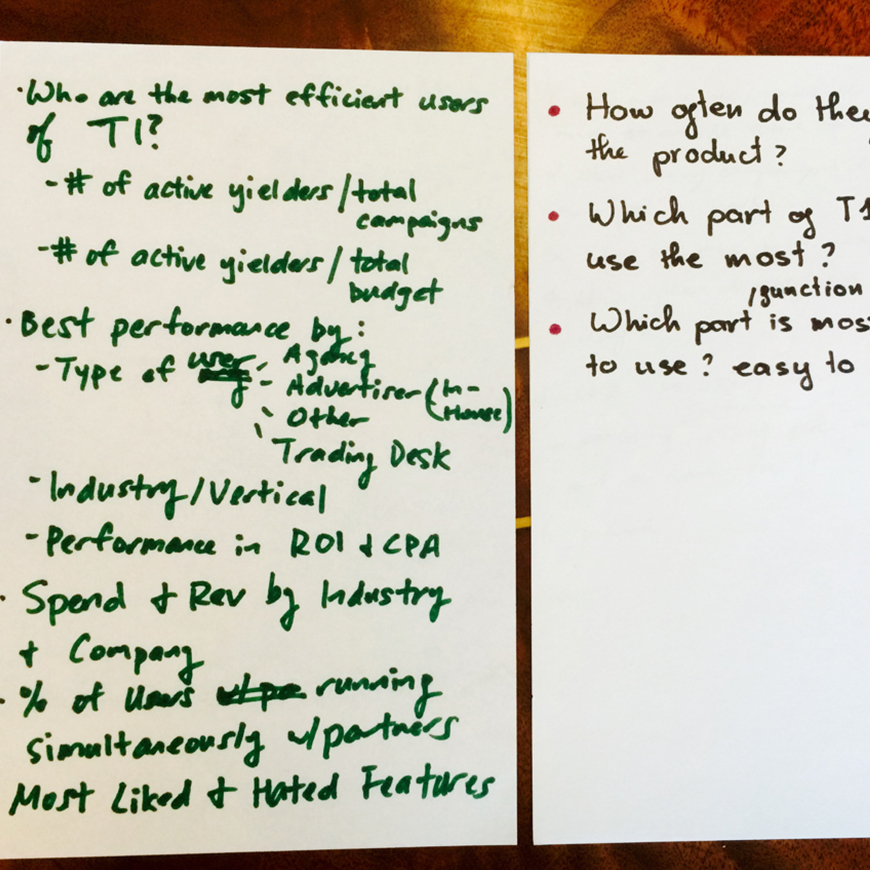 · Who are the most efficient users
of T1?
- # of active yielders / total
campaigns
- # of active yielders / total
budget
· Best performance by:
- Type of user - Agency
- Advertiser (In-
House)
- Other
- Trading Desk
- Industry/Vertical
- Performance in ROI + CPA
· Spend + Rev by Industry
+ Company
· % of Users running
simultaneously w/partners
Most Liked + Hated Features
• How often do they
the product?
• Which part of T1
use the most?
/function
• Which part is mos
to use? easy to